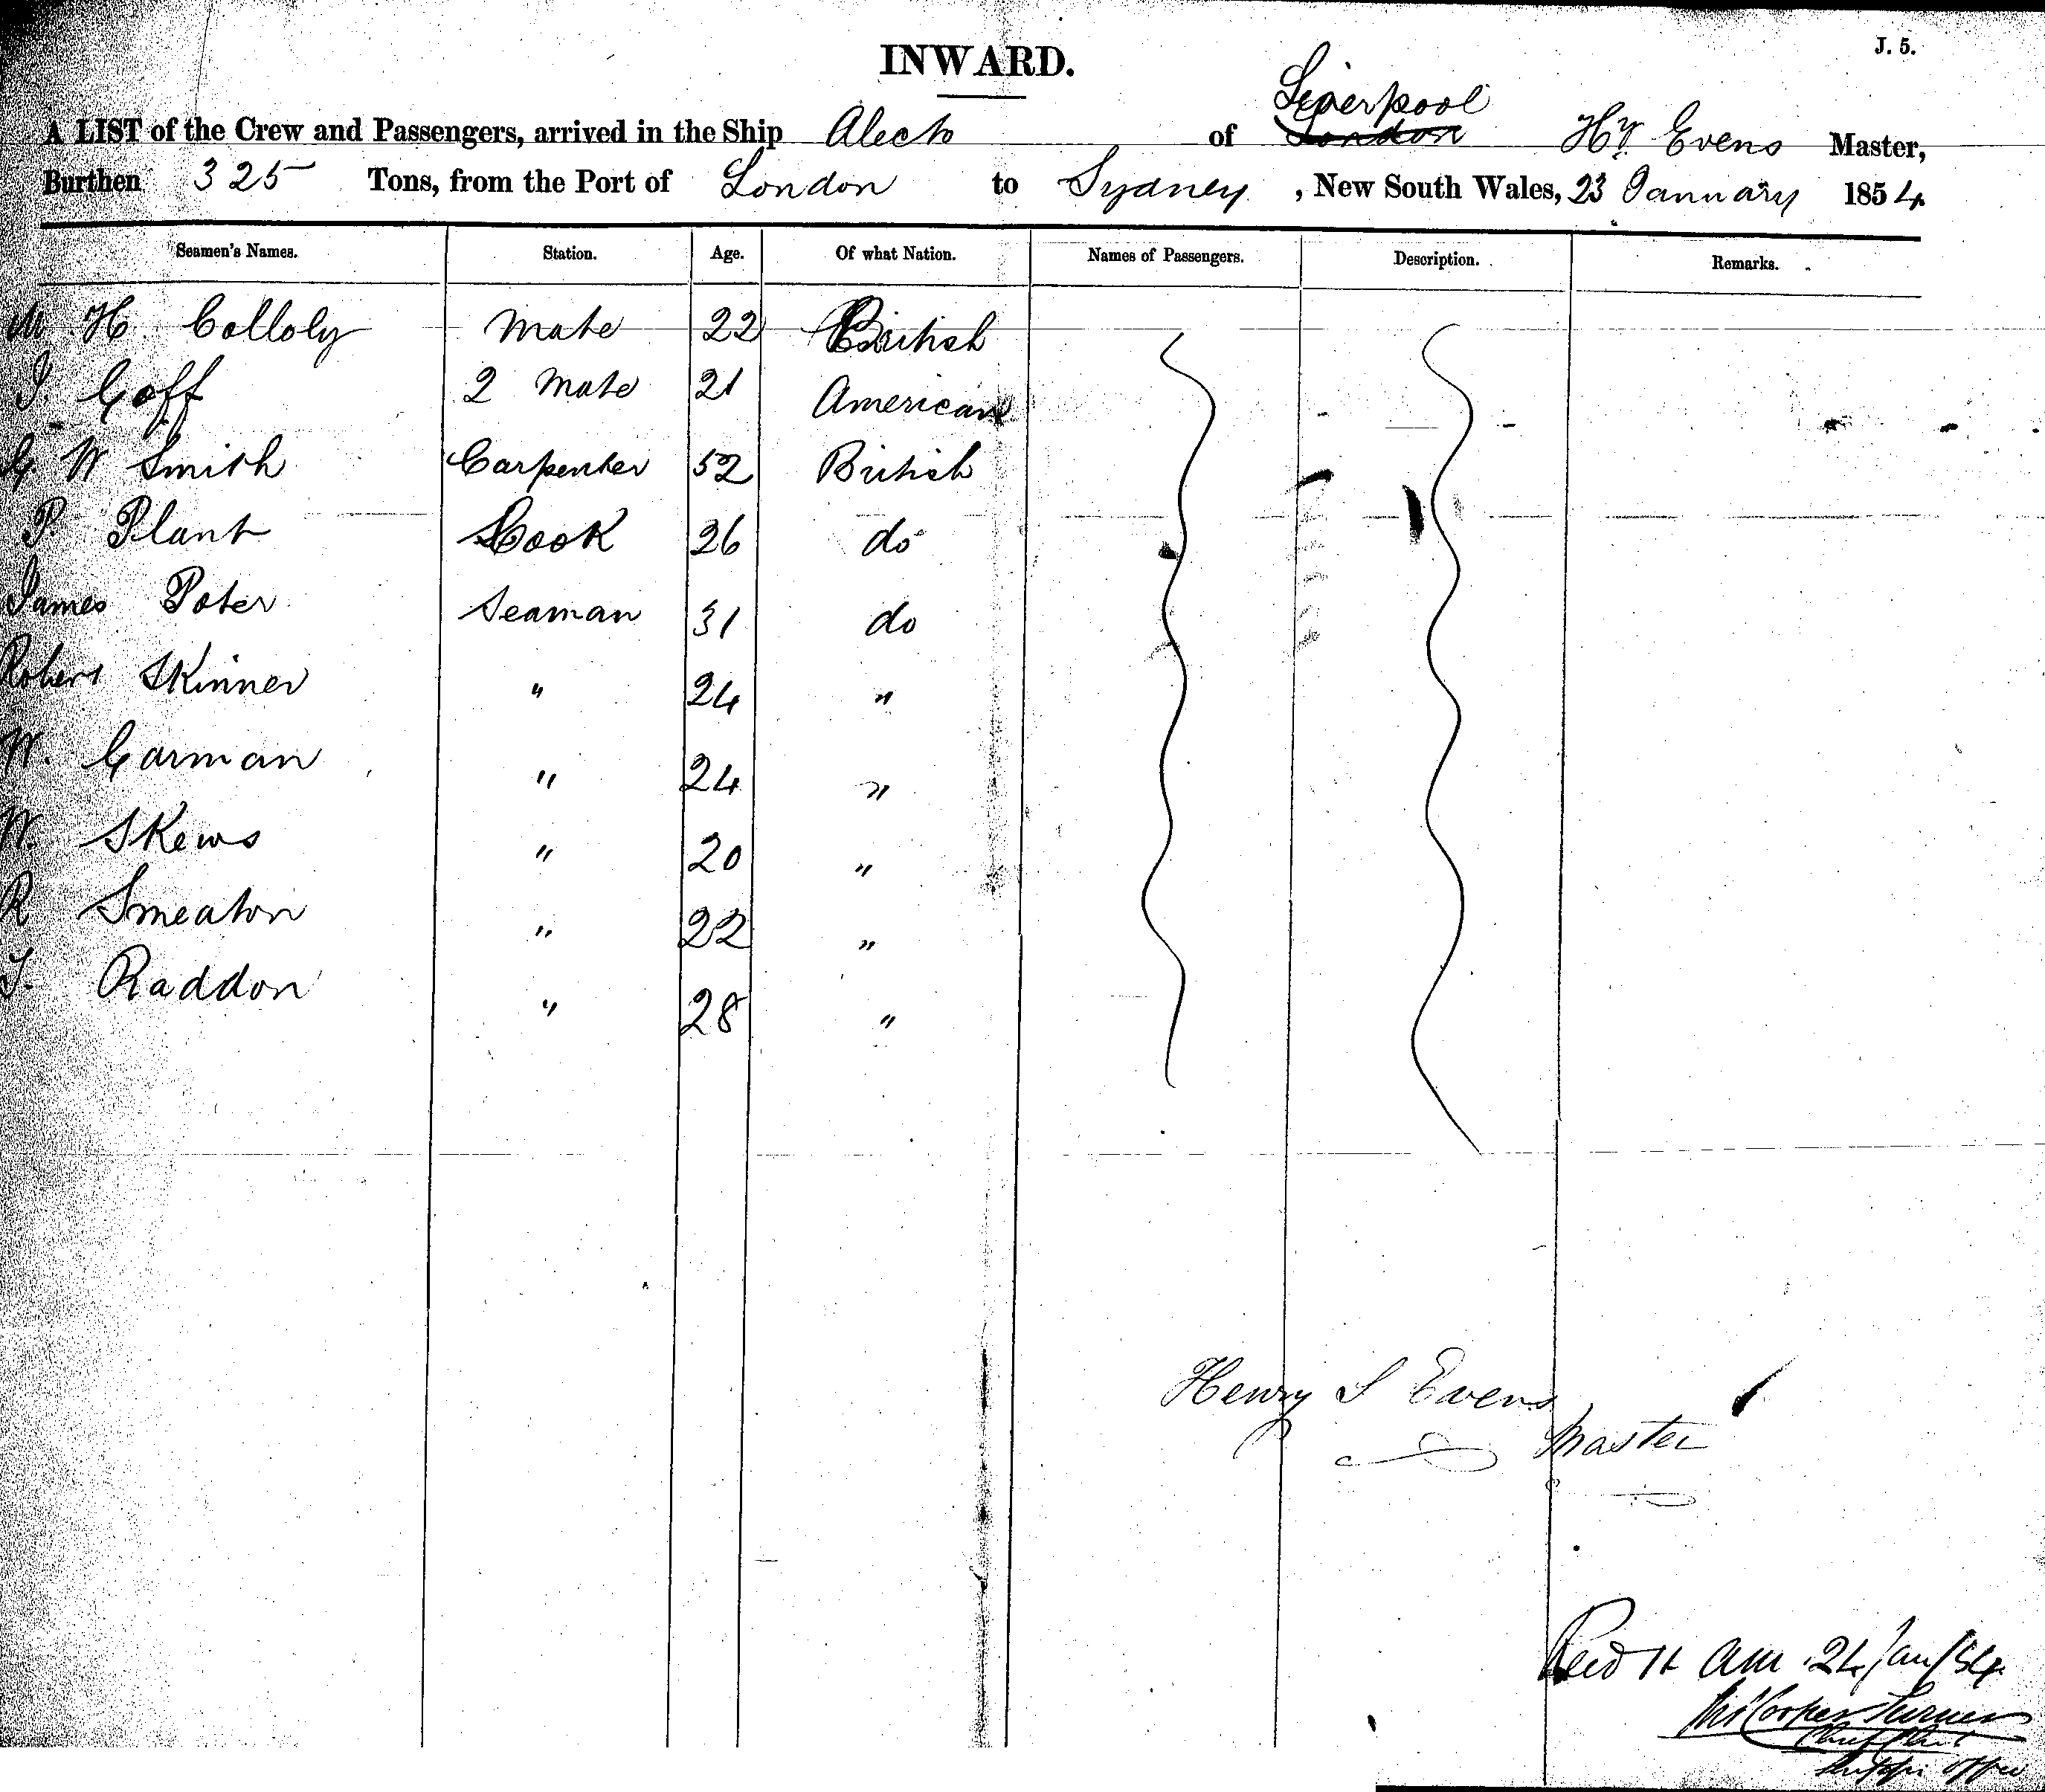 J. 5.
INWARD.
Liverpool
A LIST of the Crew and Passengers, arrived in the Ship Alecto of London Hy Evens Master,
Burthen 325 Tons, from the Port of London to Sydney, New South Wales, 23 January 1854
Seamen's Names. Station. Age. Of what Nation. Names of Passengers. Description. Remarks.
M H Colloly Mate 22 British
J. Goff 2 Mate 21 American
G W Smith Carpenter 52 British
P. Plant Cook 26 do
James Poter Seaman 31 do
Robert Skinner " 24 "
W. Carman " 24 "
W. Skews " 20 "
R Smeaton " 22 "
J. Raddon " 28 "
Henry S Evens
Master
Recd 11 am 24 Jan/54
Cooper Turner
Chief Clerk
Office